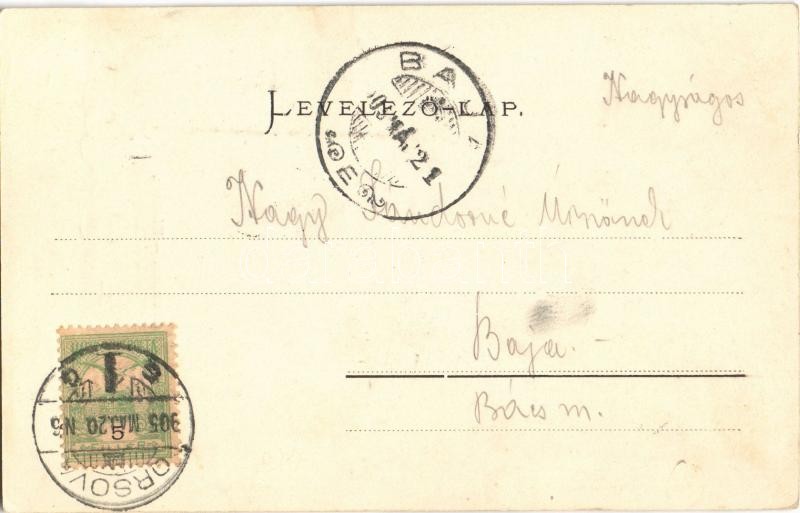 LEVELEZŐ-LAP.
Nagyságos
Nagy Sándorné Úrnőnek
Baja.
Bács m.
BAJA
905 MÁJ. 21
E
ORSOVA
905 MÁJ. 20. N6
5